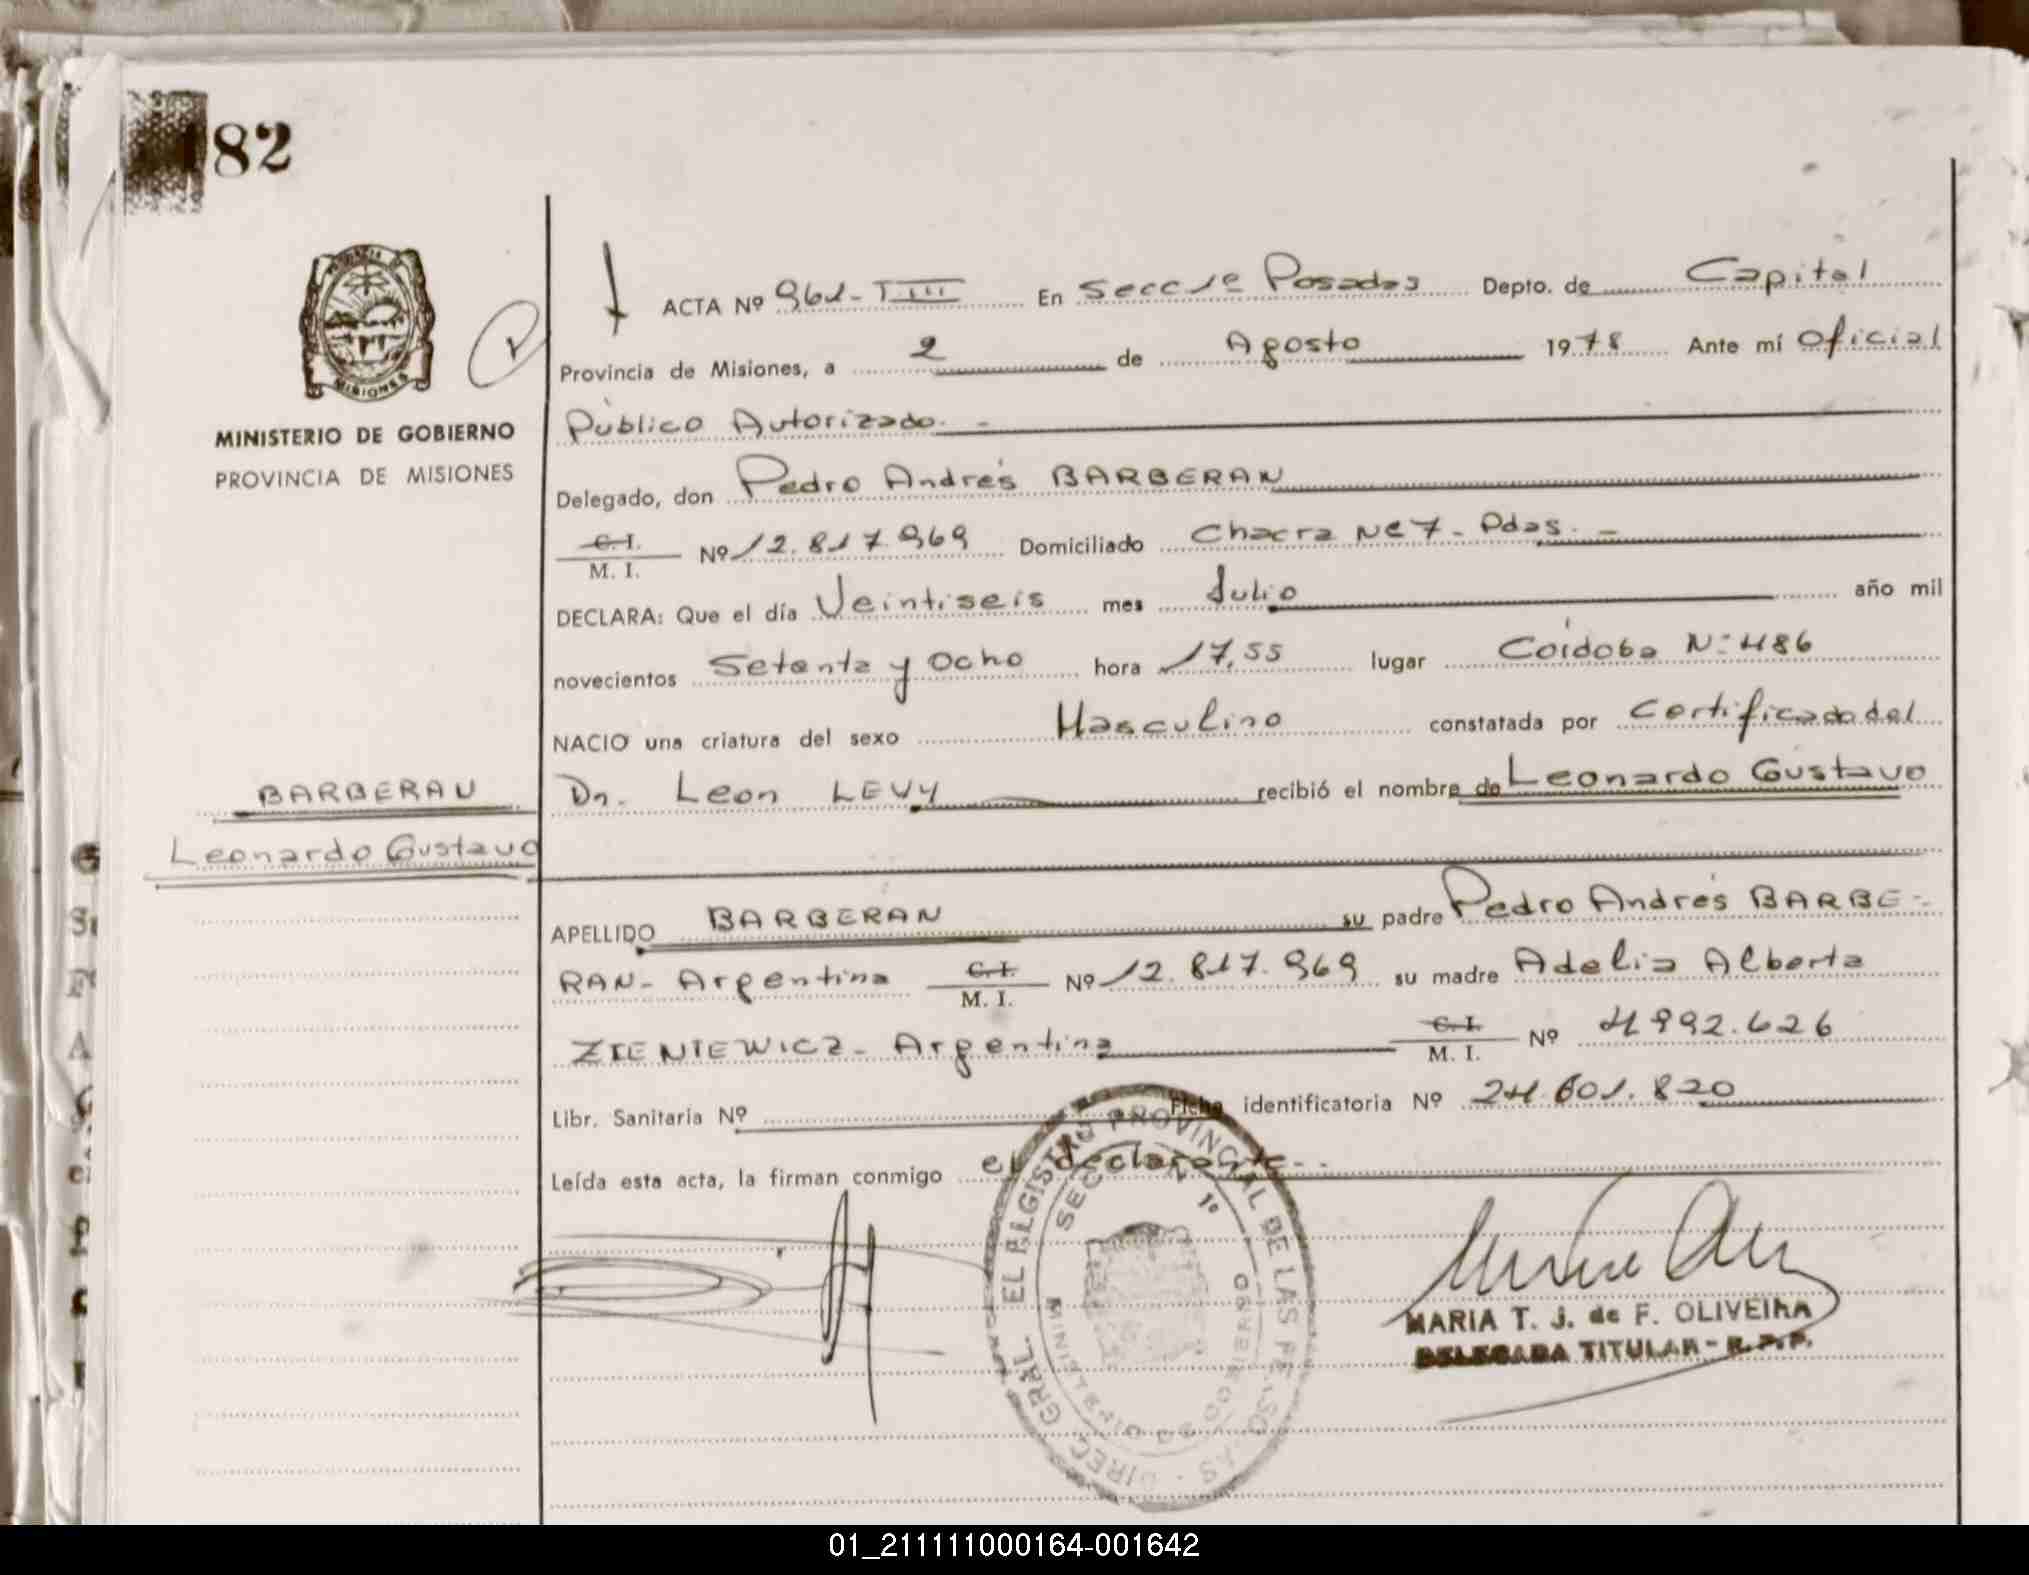 182
ACTA Nº 961-T.III En Secc 1º Posadas Depto. de Capital
Provincia de Misiones, a 2 de Agosto 1978 Ante mí Oficial
MINISTERIO DE GOBIERNO
PROVINCIA DE MISIONES
MISIONES
Público Autorizado. -
Delegado, don Pedro Andrés BARBERAN
C. I.
M. I. Nº 12.817.969 Domiciliado Chacra Nº 7 - Pdas. -
DECLARA: Que el día Veintiseis mes Julio año mil
novecientos Setenta y Ocho hora 17,55 lugar Córdoba Nº 486
NACIO una criatura del sexo Masculino constatada por Certificado del
Dr. Leon LEVY recibió el nombre de Leonardo Gustavo
BARBERAN
Leonardo Gustavo
APELLIDO BARBERAN su padre Pedro Andrés BARBE-
RAN- Argentina C. I. M. I. Nº 12.817.969 su madre Adelia Alberta
ZIENIEWICZ- Argentina C. I. M. I. Nº 4992.626
Libr. Sanitaria Nº Ficha identificatoria Nº 24.601.820
Leída esta acta, la firman conmigo el declarante.-
DIREC. GRAL. EL REGISTRO PROVINCIAL DE LAS PERSONAS
SECC 1º
MINISTERIO DE GOBIERNO
MARIA T. J. de F. OLIVEIRA
DELEGADA TITULAR - R.P.P.
01_211111000164-001642